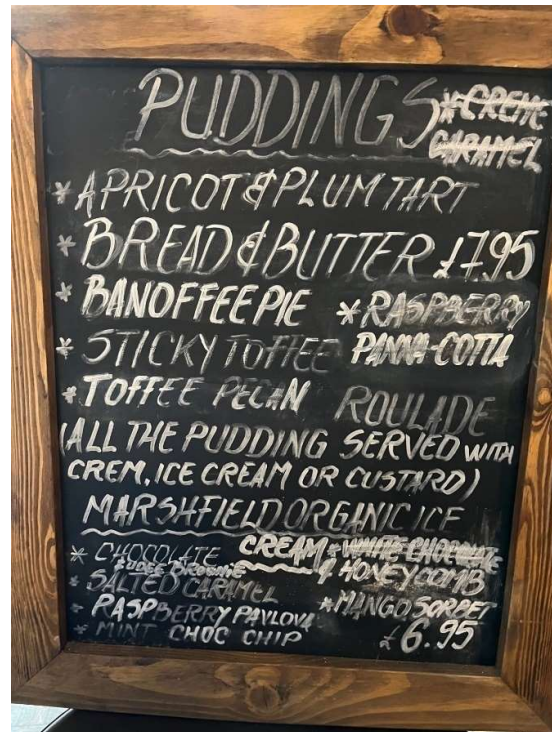 PUDDINGS
* CREME
CARAMEL
* APRICOT & PLUM TART
* BREAD & BUTTER £7.95
* BANOFFEE PIE
* RASPBERRY
PANNA-COTTA
* STICKY TOFFEE
* TOFFEE PECAN ROULADE
(ALL THE PUDDING SERVED WITH
CREM, ICE CREAM OR CUSTARD)
MARSHFIELD ORGANIC ICE
CREAM
* CHOCOLATE
FUDGE BROWNIE
* SALTED CARAMEL
* RASPBERRY PAVLOVA
* MINT CHOC CHIP
* WHITE CHOCOLATE
& HONEYCOMB
* MANGO SORBET
£6.95